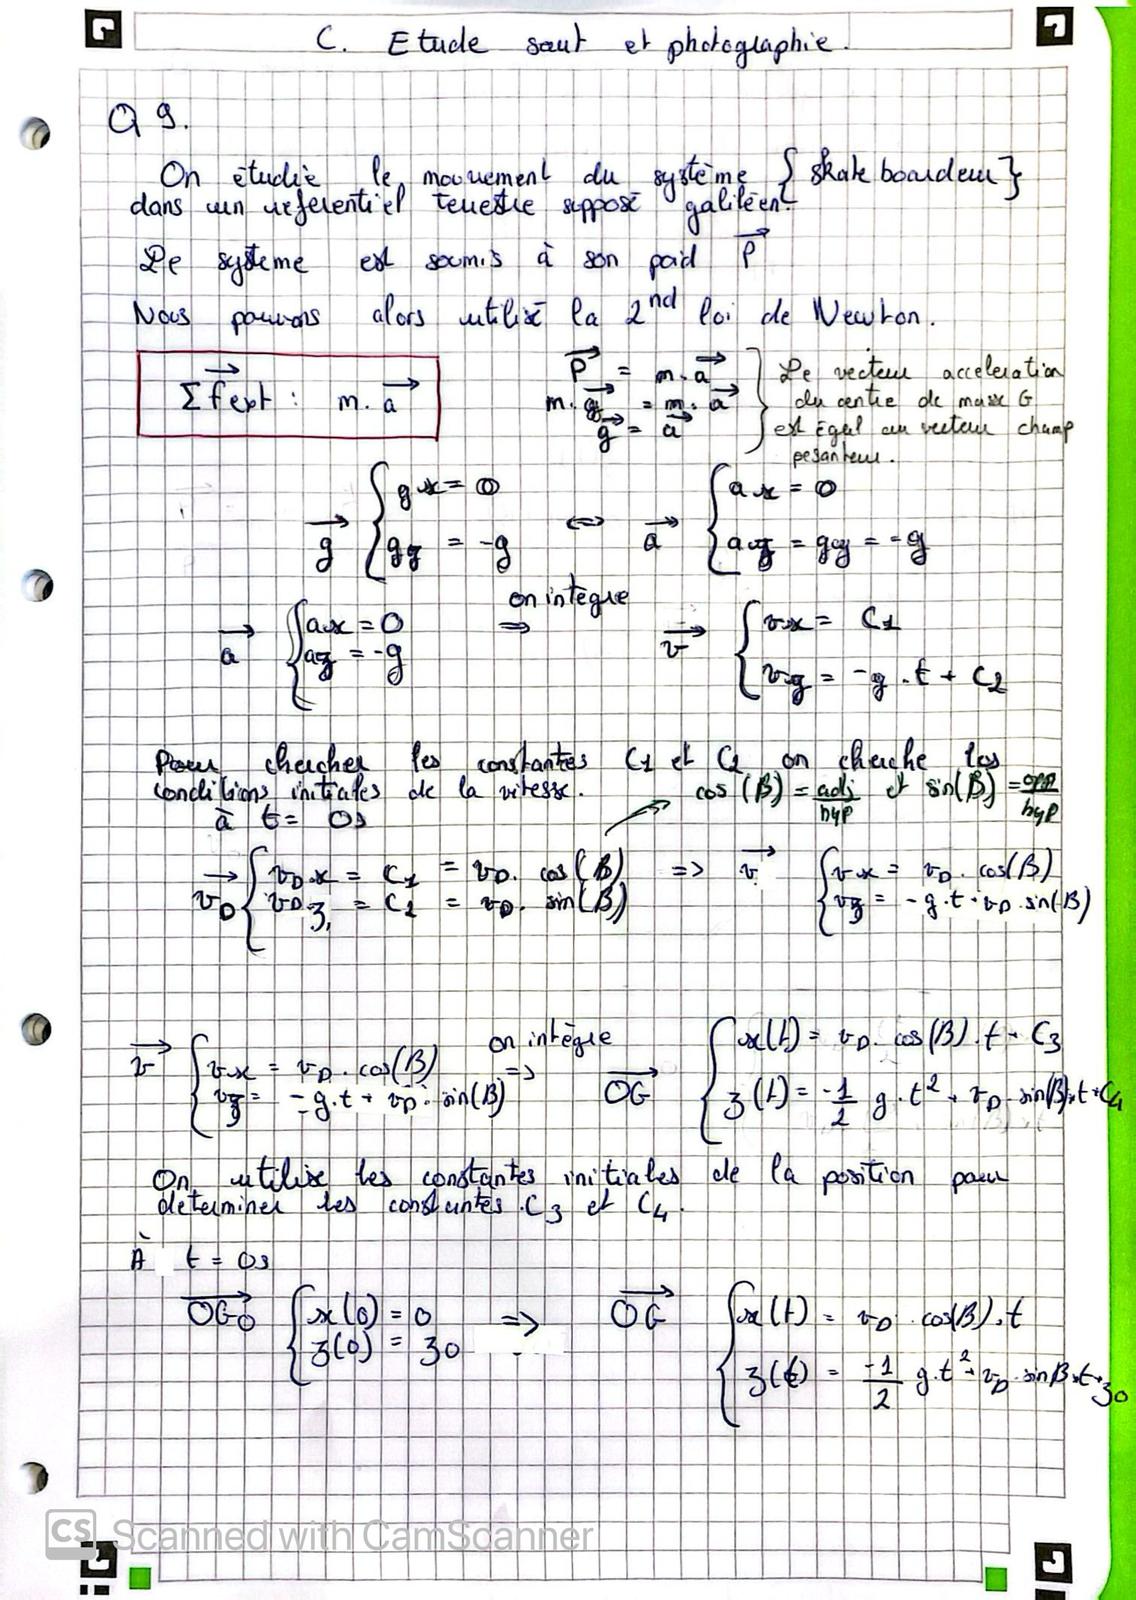 C. Etude saut et photographie.
Q 9.
On étudie le mouvement du système { skateboardeur }
dans un referentiel terrestre supposé galiléen.
Le système est soumis à son poid P
Nous pouvons alors utilisé la 2nd loi de Newton.
Σ fext : m. a
P = m. a
m. g = m. a
g = a
Le vecteur acceleration
du centre de masse G
est égal au vecteur champ
pesanteur.
g { gx = 0
gz = -g
<=> a { ax = 0
az = gz = -g
a { ax = 0
az = -g
on intègre
=>
v { vx = C1
vz = -g . t + C2
Pour chercher les constantes C1 et C2 on cherche les
conditions initiales de la vitesse.
cos (B) = adj/hyp et sin(B) = opp/hyp
à t = 0s
vD { vDx = C1 = vD. cos(B)
vDz = C2 = vD. sin(B)
=> v { vx = vD . cos(B)
vz = -g.t + vD . sin(B)
v { vx = vD . cos(B)
vz = -g.t + vD . sin(B)
on intègre
=>
OG { x(t) = vD. cos(B) . t + C3
z(t) = -1/2 g . t² + vD . sin(B) . t + C4
On utilise les constantes initiales de la position pour
determiner les constantes C3 et C4.
À t = 0s
OG0 { x(0) = 0
z(0) = z0
=> OG { x(t) = vD . cos(B) . t
z(t) = -1/2 g.t² + vD . sin B . t + z0
CS Scanned with CamScanner